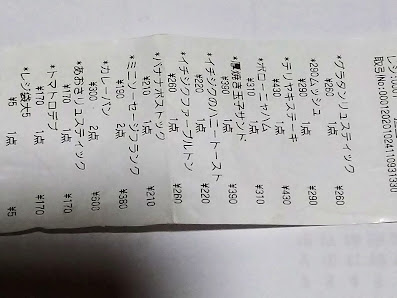 取引No:00012020102410931330
*グラタンリュスティック
1点 ¥260
*290ムッシュ
¥290 1点 ¥290
*テリヤキステーキ
¥430 1点 ¥430
*ボローニャハム
¥310 1点 ¥310
*厚焼き玉子サンド
¥390 1点 ¥390
*イチジクのハニートースト
¥220 1点 ¥220
*イチジクファーブルトン
¥260 1点 ¥260
*バナナボストック
¥210 1点 ¥210
*ミニソーセージフランク
¥190 2点 ¥380
*カレーパン
¥300 2点 ¥600
*あおさリュスティック
¥170 1点 ¥170
*トマトロデブ
¥170 1点 ¥170
*レジ袋大5
¥5 1点 ¥5